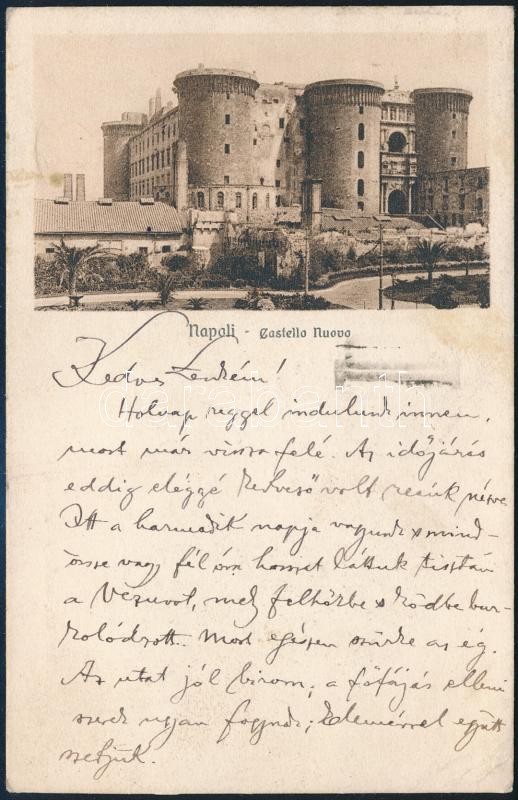 Napoli - Castello Nuovo
Kedves Lenkém!
Holnap reggel indulunk innen,
most már vissza felé. Az időjárás
eddig eléggé kedvező volt reánk nézve
Itt a harmadik napja vagyunk s mind-
össze vagy fél óra hosszat láttuk tisztán
a Vezuvot, mely felhőkbe s ködbe bur-
kolódzott. Most egészen szürke az ég.
Az utat jól birom, a főfájás elleni
szerek ugyan fogynak; Elemérrel együtt
szedjük.